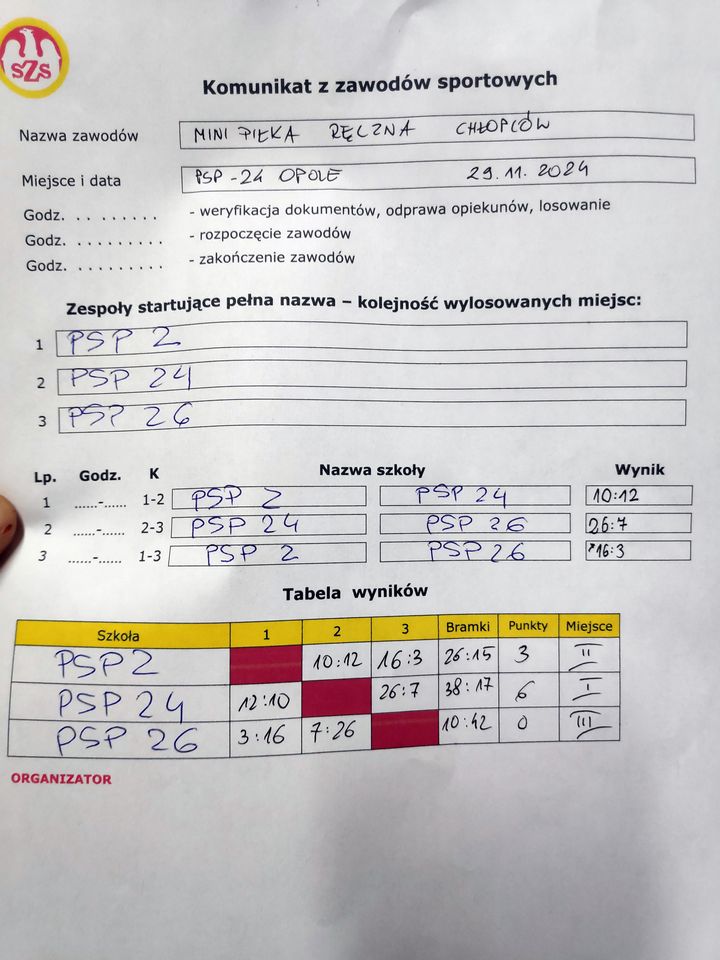 SZS
Komunikat z zawodów sportowych
Nazwa zawodów MINI PIŁKA RĘCZNA CHŁOPCÓW
Miejsce i data PSP-24 OPOLE 29.11.2024
Godz. . . . . . . . . . - weryfikacja dokumentów, odprawa opiekunów, losowanie
Godz. . . . . . . . . . - rozpoczęcie zawodów
Godz. . . . . . . . . . - zakończenie zawodów
Zespoły startujące pełna nazwa – kolejność wylosowanych miejsc:
1 PSP 2
2 PSP 24
3 PSP 26
Lp. Godz. K Nazwa szkoły Wynik
1 ......-...... 1-2 PSP 2 PSP 24 10:12
2 ......-...... 2-3 PSP 24 PSP 26 26:7
3 ......-...... 1-3 PSP 2 PSP 26 16:3
Tabela wyników
Szkoła 1 2 3 Bramki Punkty Miejsce
PSP 2 10:12 16:3 26:15 3 II
PSP 24 12:10 26:7 38:17 6 I
PSP 26 3:16 7:26 10:42 0 III
ORGANIZATOR